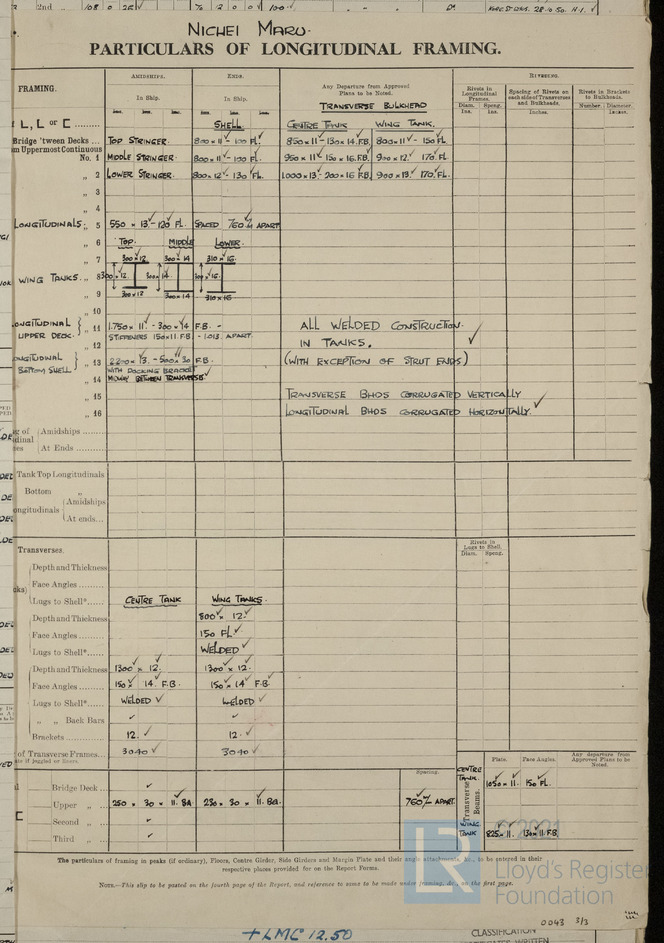 2nd " 108 0 25 100
NICHEI MARU.
PARTICULARS OF LONGITUDINAL FRAMING.
FRAMING.
AMIDSHIPS. ENDS. Any Departure from Approved Plans to be Noted. RIVETING.
In Ship. In Ship. TRANSVERSE BULKHEAD
Rivets in Longitudinal Frames. Spacing of Rivets on each side of Transverses and Bulkheads. Rivets in Brackets to Bulkheads.
Diam. Ins. Spcng. Ins. Inches. Number. Diameter. Inches.
L, L or C SHELL CENTRE TANK WING TANK.
Bridge 'tween Decks TOP STRINGER. 800 x 11 - 100 FL. 850 x 11 - 130 x 14. F.B. 800 x 11 - 150 FL
m Uppermost Continuous
No. 1 MIDDLE STRINGER. 800 x 11 - 100 FL. 950 x 11 150 x 16. F.B. 900 x 12. 170 FL
" 2 LOWER STRINGER. 800 x 12 - 130 FL. 1000 x 13 - 200 x 16 F.B. 900 x 13. 170. FL.
" 3
" 4
LONGITUDINALS; " 5 550 x 13 - 120 FL SPACED 760 m/m APART
" 6 TOP. MIDDLE LOWER.
" 7 300 x 12 300 x 14 310 x 16
WING TANKS. " 8 300 x 12. 300 x 14. 300 x 16.
" 9 300 x 12 300 x 14 310 x 16
" 10
LONGITUDINAL UPPER DECK. } " 11 1.750 x 11 - 300 x 14 F.B. -
STIFFENERS 150 x 11 F.B. - 1.013. APART.
" 12
LONGITUDINAL BOTTOM SHELL } " 13 2200 x 13. - 500 x 30 F.B.
WITH DOCKING BRACKET
" 14 MIDWAY BETWEEN TRANSVERSES
" 15
" 16
ALL WELDED CONSTRUCTION.
IN TANKS.
(WITH EXCEPTION OF STRUT ENDS)
TRANSVERSE BHDS CORRUGATED VERTICALLY
LONGITUDINAL BHDS CORRUGATED HORIZONTALLY.
Amidships
At Ends
Tank Top Longitudinals
Bottom "
ongitudinals { Amidships
At ends
Transverses.
Rivets in Lugs to Shell.
Diam. Spcng.
Depth and Thickness
Face Angles
Lugs to Shell* CENTRE TANK WING TANKS.
Depth and Thickness 800 x 12.
Face Angles 150 FL
Lugs to Shell* WELDED
Depth and Thickness 1300 x 12. 1300 x 12.
Face Angles 150 x 14. F.B. 150 x 14 F.B.
Lugs to Shell* WELDED WELDED
" " Back Bars
Brackets 12. 12.
of Transverse Frames 3040 3040
Spacing.
Plate. Face Angles. Any departure from Approved Plans to be Noted.
Bridge Deck
Upper " 250 x 30 x 11. BA. 250 x 30 x 11. BA. 760 m/m APART.
Second "
Third "
Transverse Beams.
CENTRE TANK. 1050 x 11. 150 FL.
WING TANK 825 x 11. 130 x 11 F.B.
The particulars of framing in peaks (if ordinary), Floors, Centre Girder, Side Girders and Margin Plate and their angle attachments, &c., to be entered in their
respective places provided for on the Report Forms.
NOTE.—This slip to be posted on the fourth page of the Report, and reference to same to be made under framing, &c., on the first page.
© 2021
LR
Lloyd's Register
Foundation
0043 3/3
+ LMC 12.50
CLASSIFICATION